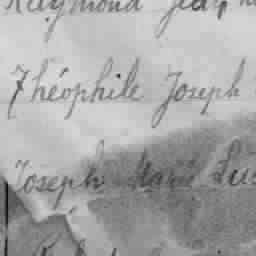 Raymond Jean
Théophile Joseph
Joseph Marie Luc